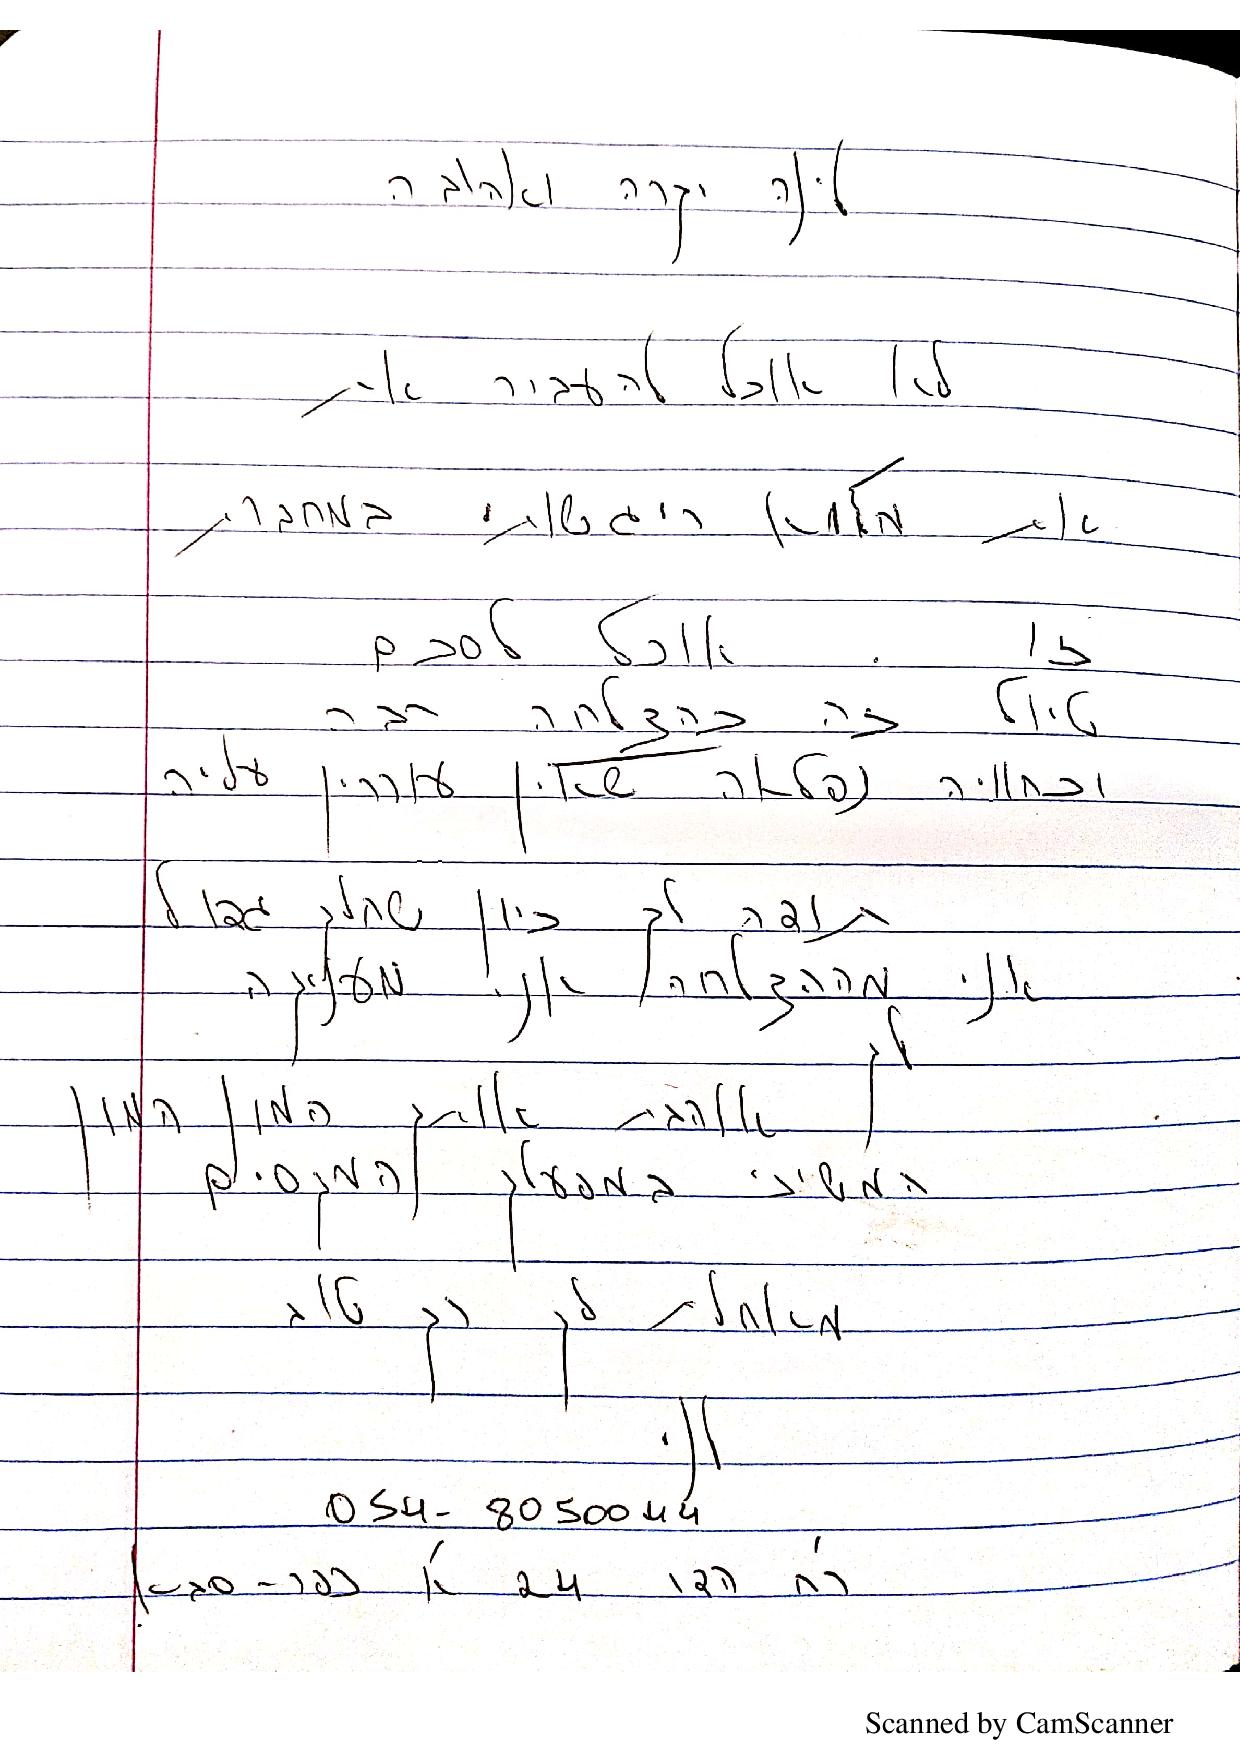 לילה יקרה ואהובה
לא אוכל להעביר את
את מלוא ריגשותי במחברת
זו . אוכל לסכם
טיול כה בהצלחה רבה
ובחוויה נפלאה שאין עוררין עליה
תודה לך כיון שחלק גדול
אני מההצלחה אני מעניקה
לך
אוהבת אותך המון המון
המשיכי במפעלך המקסים
מאחלת לך רק טוב
לני
054-8050044
רח' הדר 24 א' כפר-סבא
Scanned by CamScanner